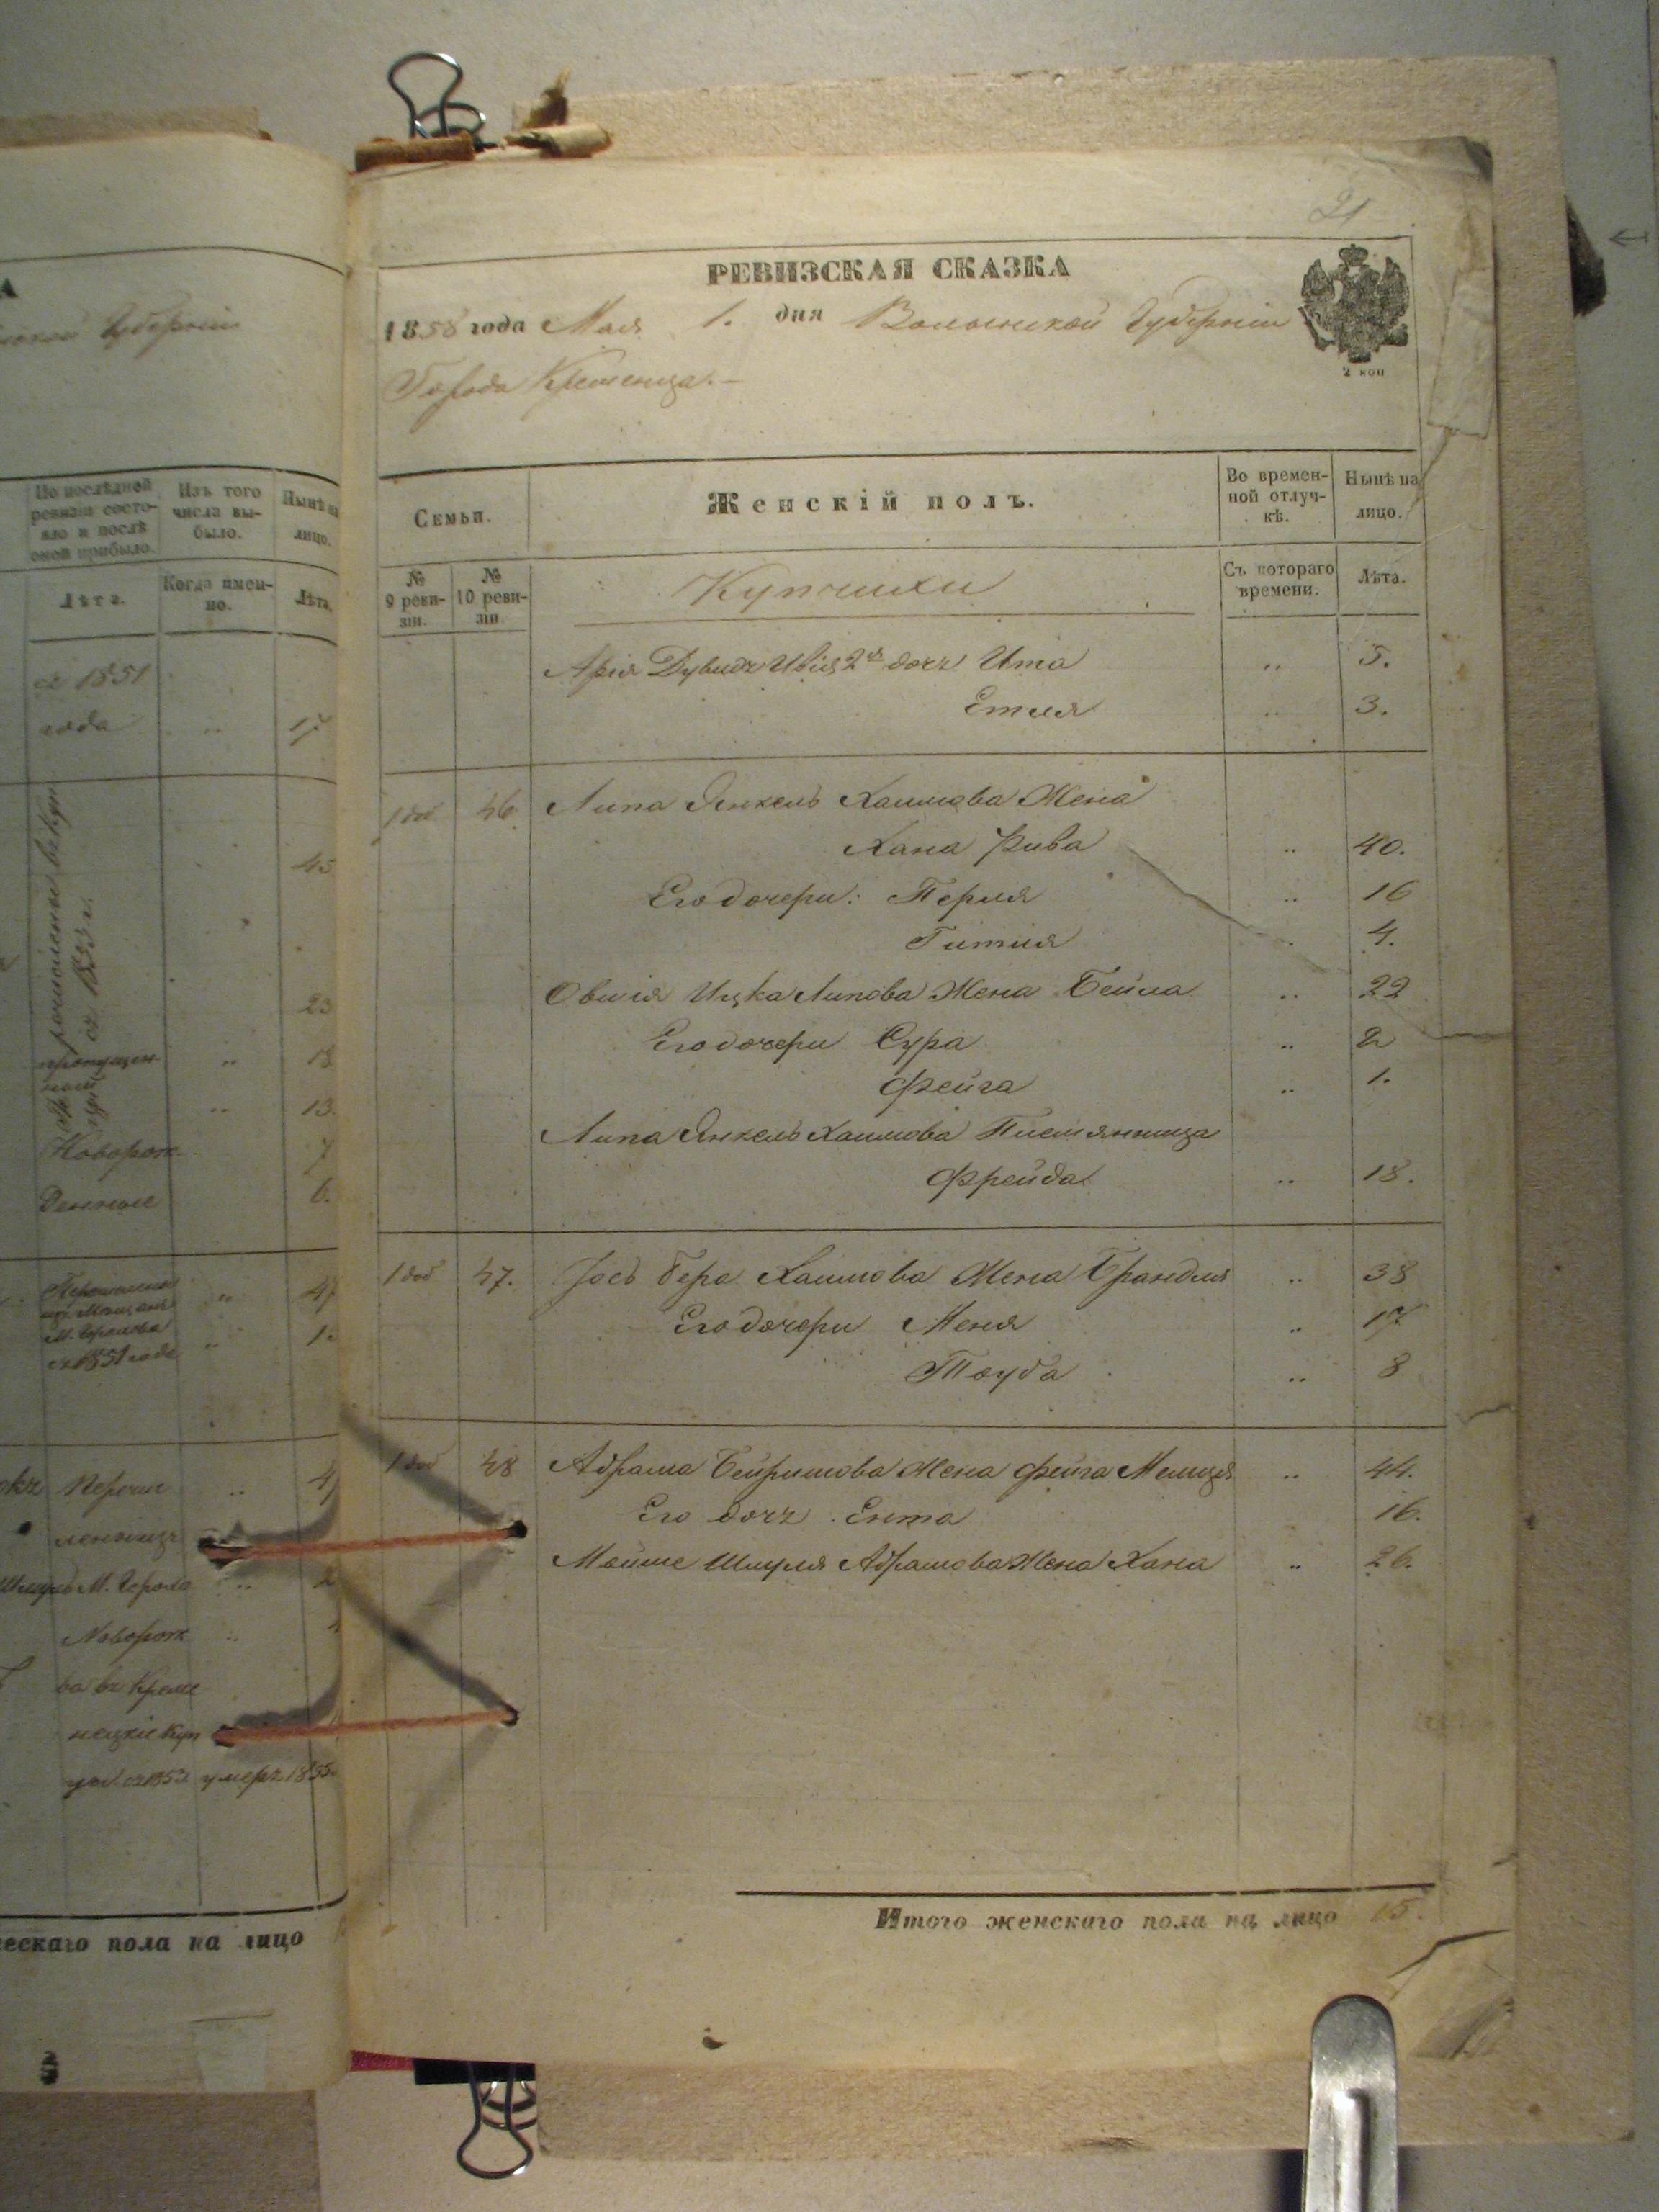 21
РЕВИЗСКАЯ СКАЗКА
1858 года Мая 1. дня Волынской Губерніи
Города Кременца.
2 коп
Семьи.
Женскій полъ.
Во времен-
ной отлуч-
кѣ.
Нынѣ на
лицо.
№
9 реви-
зіи.
№
10 реви-
зіи
Купчихи
Съ котораго
времени.
Лѣта.
Арія Дувидъ 2я дочь Ита „ 5.
Етля „ 3.
1 доб 46 Липа Янкель Хаимова Жена
Хана Рива „ 40.
Его дочери: Перля „ 16
Гитля „ 4.
Овшія Ицка Липова Жена Бейла „ 22
Его дочери Сура „ 2
Фейга „ 1.
Липа Янкель Хаимова Племянница
Фрейда „ 18.
1 доб 47. Іось Бера Хаимова Жена Брандля „ 38
Его дочери Меня „ 17
Тауба „ 8
1 доб 48 Абрама Бейришова Жена Фейга „ 44.
Его дочь Ента 16.
Мойше Шмуля Абрамова Жена Хана „ 26.
Итого женскаго пола на лицо 15.
Губерніи
По послѣдней
ревизіи состо-
яло и послѣ
оной прибыло.
Изъ того
числа вы-
было.
Нынѣ на
лицо.
Лѣта.
Когда имен-
но.
Лѣта.
съ 1851
года „ 17
45
23
пропущен „ 18
„ 13.
Новорож 7
денные 6.
съ 1851 года
Новорож
ва въ Креме
нецкіе Куп
умеръ 1855
ескаго пола на лицо